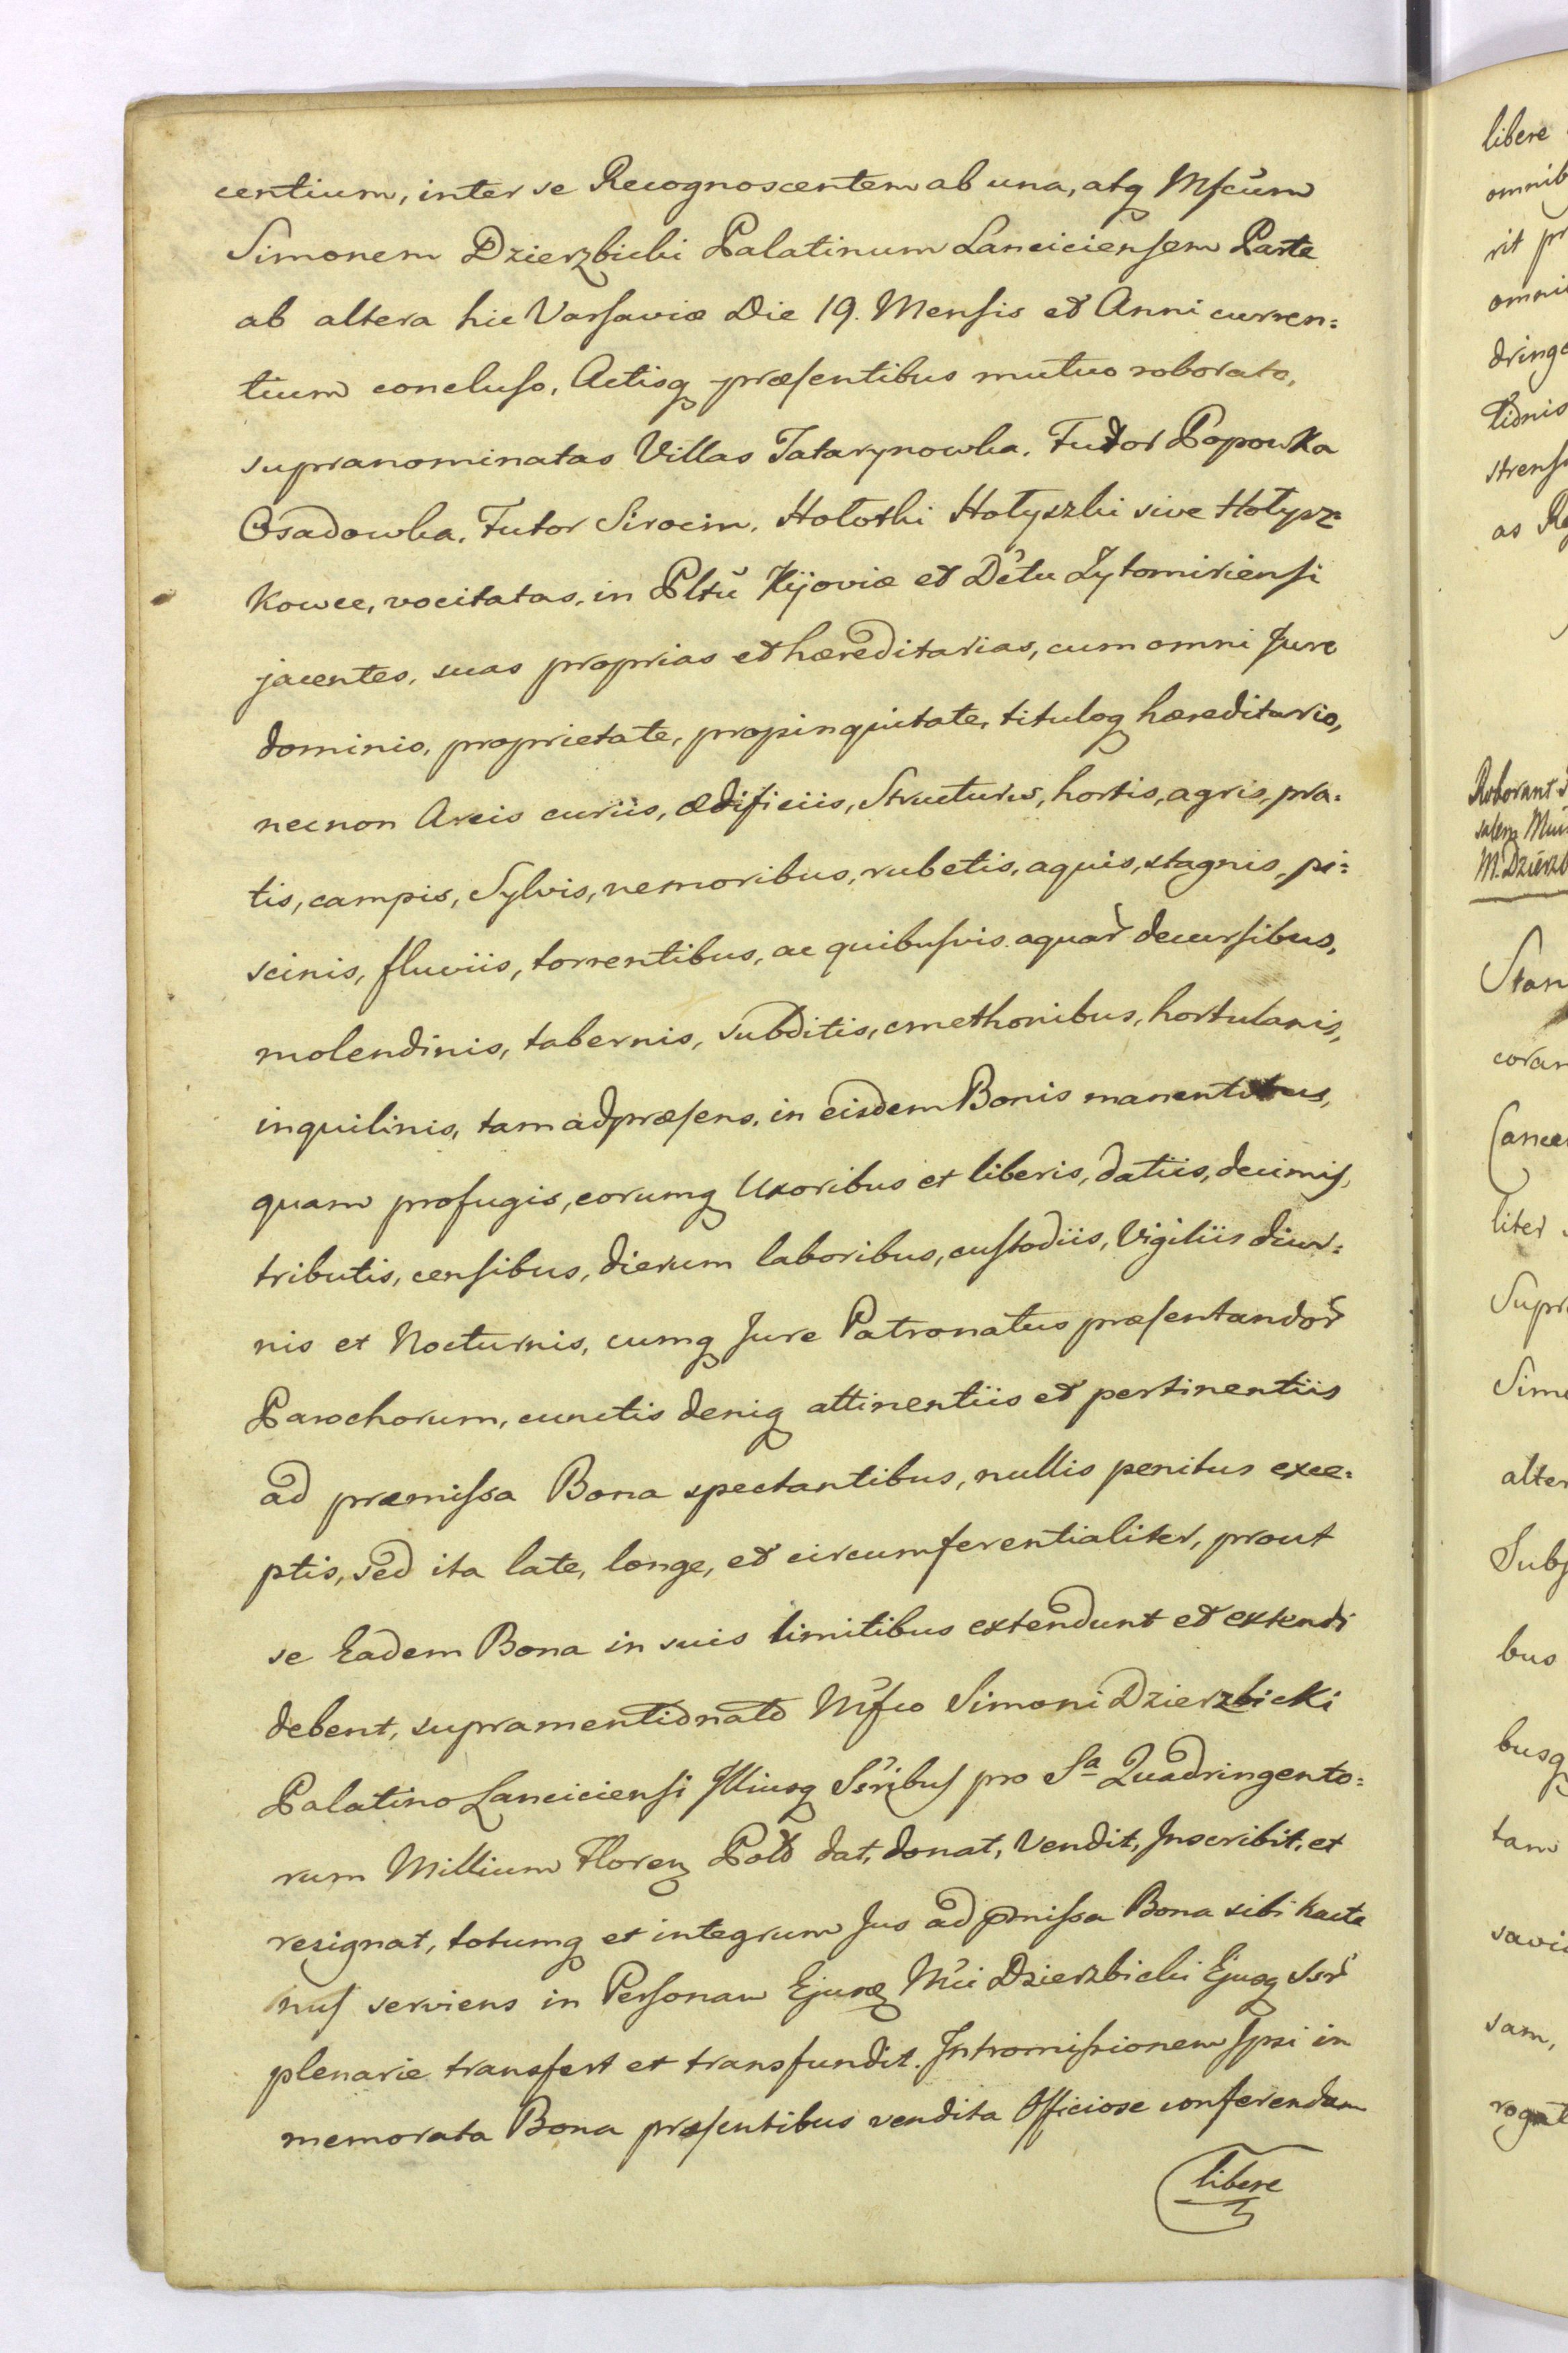 centium, inter se Recognoscentem ab una, atq Mfcum
Simonem Dzierzbicki Palatinum Lanciciensem Parte
ab altera hic Varsaviæ Die 19. Mensis et Anni curren=
tium concluso, Actisq præsentibus mutuo roborato,
supranominatas Villas Tatarynowka. Futor Popowka
Osadowka. Futor Sirocin. Hołotki Hołyszki sive Hołysz=
kowce, vocitatas, in Pltũ Kijoviæ et Dčtu Zytomiriensi
jacentes, suas proprias et hæreditarias, cum omni Jure
dominio, proprietate, propinquitate, tituloq hæreditario,
necnon Areis curiis, ædificiis, Structuris, hortis, agris, pra=
tis, campis, Sylvis, nemoribus, rubetis, aquis, stagnis, pi=
scinis, fluviis, torrentibus, ac quibusvis aquar decursibus,
molendinis, tabernis, subditis, cmethonibus, hortulanis,
inquilinis, tam ad præsens, in eisdem Bonis manentibus,
quam profugis, eorumq Uxoribus et liberis, datiis, decimis,
tributis, censibus, dierum laboribus, custodiis, Vigiliis diur=
nis et Nocturnis, cumq Jure Patronatus præsentandor
Parochorum, cunctis deniq attinentiis et pertinentiis
ad præmissa Bona spectantibus, nullis penitus exce=
ptis, sed ita late, longe, et circumferentialiter, prout
se Eadem Bona in suis limitibus extendunt et extendi
debent, supramentionato Mfco Simoni Dzierzbicki
Palatino Lanciciensi Illiusq Ssribus pro Sa Quadringento=
rum Millium Floren Pol dat, donat, Vendit, Inscribit, et
resignat, totumq et integrum Jus ad pmissa Bona sibi hacte
nus serviens in Personam Ejusq Mci Dzierzbicki Ejusq Ssr
plenarie transfert et transfundit. Intromissionem Ipsi in
memorata Bona præsentibus vendita Officiose conferendam
libere
libere
omnib
rit pr
omni
dring
tionis
strens
as Re
Roborant
salem Mu
M. Dzierzb
Stan
coram
Cance
liter
Supr
Sim
alter
Subj
bus
busq
tam
savi
sam,
rogat